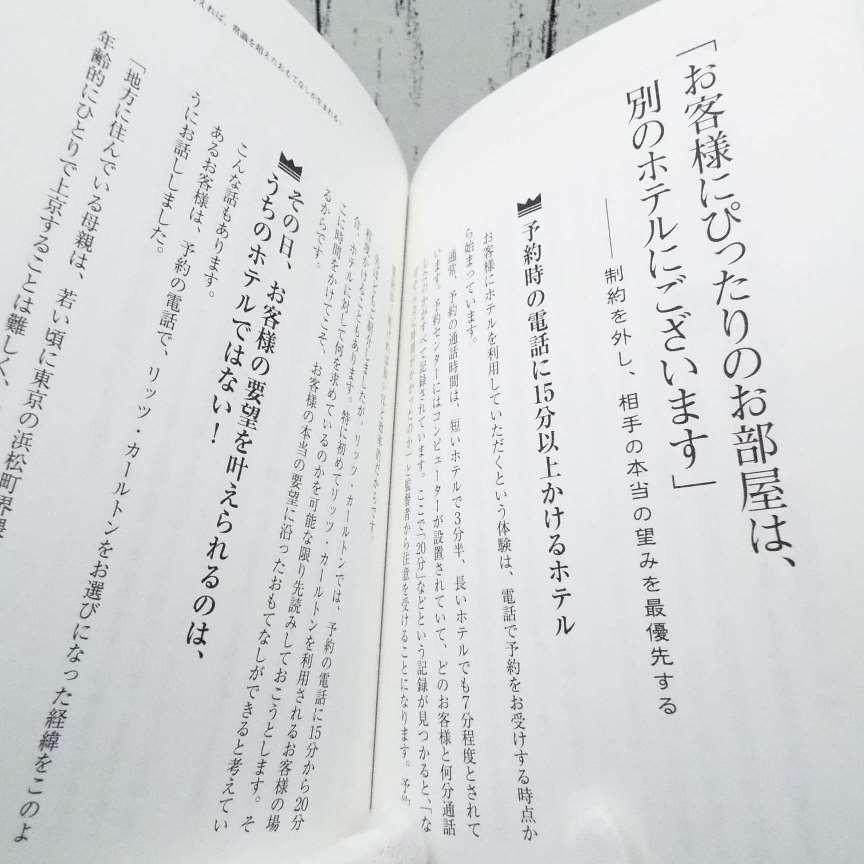 「お客様にぴったりのお部屋は、
別のホテルにございます」
――制約を外し、相手の本当の望みを最優先する
予約時の電話に15分以上かけるホテル
お客様にホテルを利用していただくという体験は、電話で予約をお受けする時点か
ら始まっています。
通常、予約の通話時間は、短いホテルで3分半、長いホテルでも7分程度とされて
います。予約センターにはコンピューターが設置されていて、どのお客様と何分通話
したのかがすべて記録されています。ここで「20分」などという記録が見つかると、「な
と監督者から注意を受けることになります。
先ほどもご紹介しましたが、リッツ・カールトンでは、予約の電話に15分から20分
程度かけることもあります。特に初めてリッツ・カールトンを利用されるお客様の場
合、ホテルに対して何を求めているのかを可能な限り先読みしておこうとします。そ
こに時間をかけてこそ、お客様の本当の要望に沿ったおもてなしができると考えてい
るからです。
その日、お客様の要望を叶えられるのは、
うちのホテルではない！
こんな話もあります。
あるお客様は、予約の電話で、リッツ・カールトンをお選びになった経緯をこのよ
うにお話ししました。
「地方に住んでいる母親は、若い頃に東京の浜松町界隈
年齢的にひとりで上京することは難しく、
えれば、常識を超えたおもてなしが生まれる